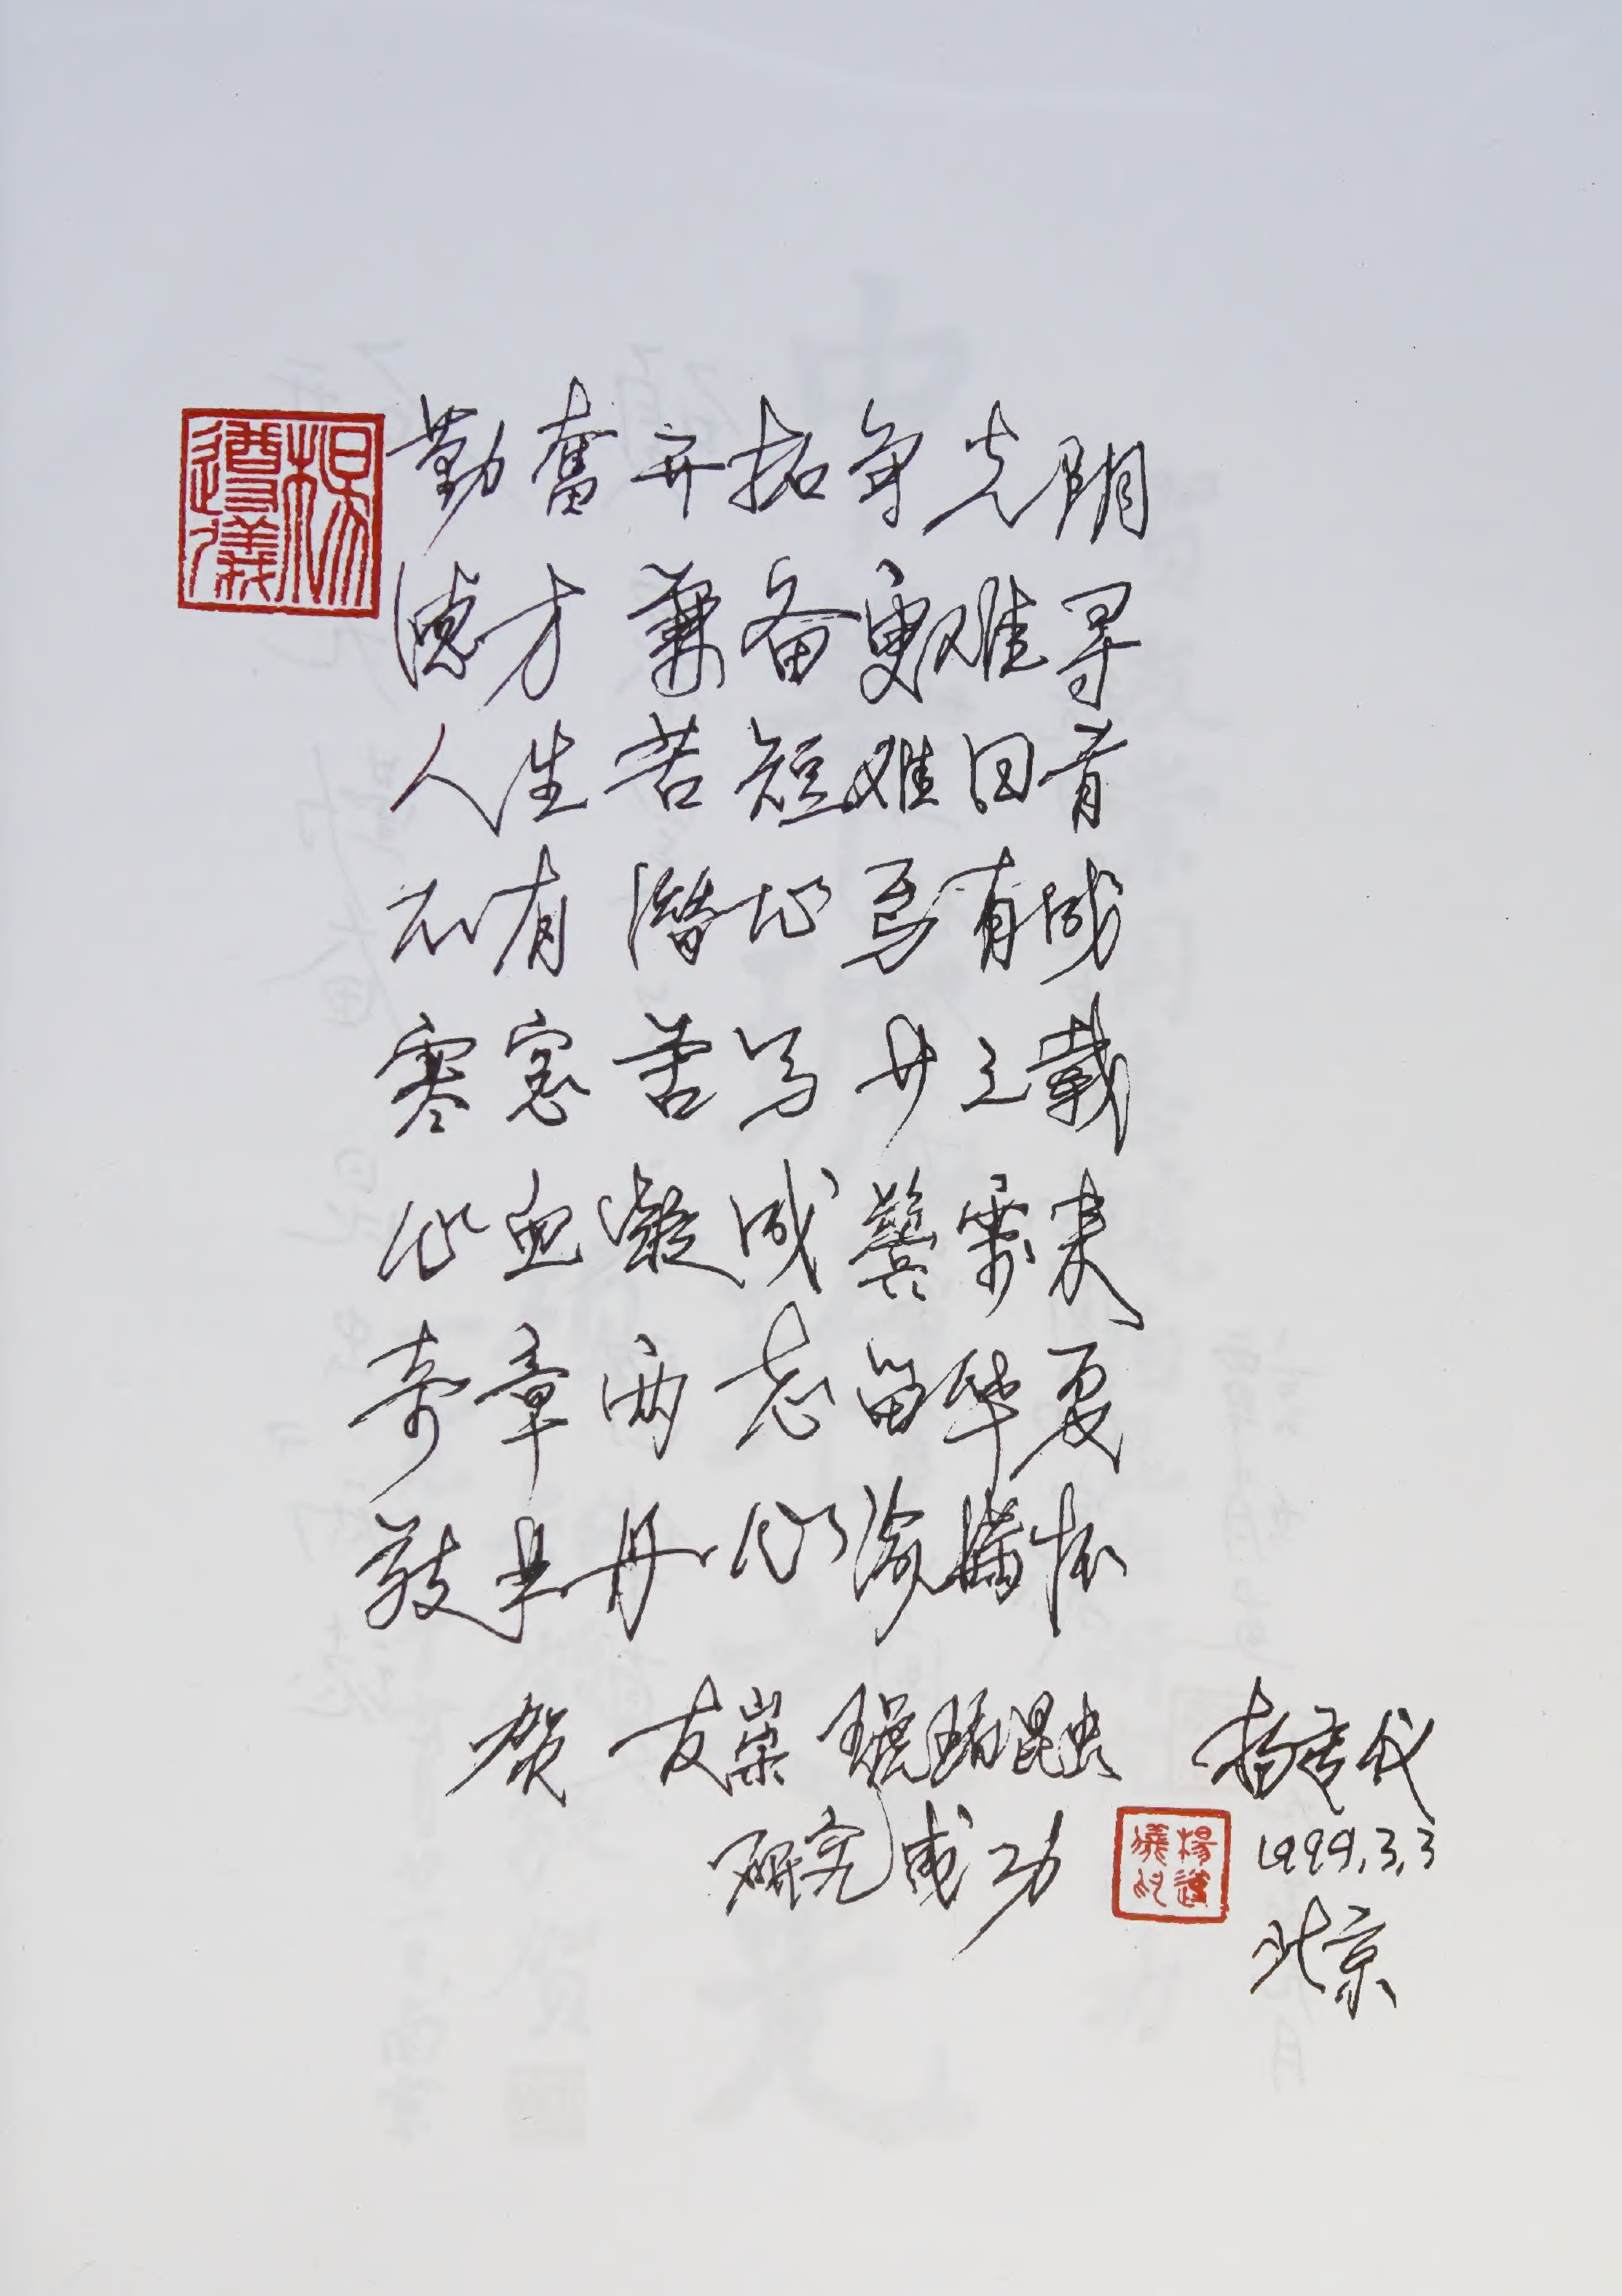 勤奋开拓争光阴
德才兼备更难寻
人生苦短难回首
不有潜心焉有成
寒窗苦写廿三载
心血凝成鬓霜来
奇章两志留华夏
敬业丹心溢满怀
贺 友崇 琥珀昆虫
研究成功
杨遵仪
1999.3.3
北京
楊遵儀
楊遵儀印